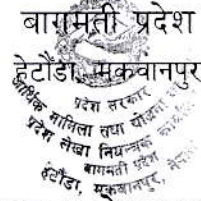 बागमती प्रदेश
हेटौंडा, मकवानपुर
प्रदेश सरकार
आर्थिक मामिला तथा योजना
प्रदेश लेखा नियन्त्रक कार्यालय
बागमती प्रदेश
हेटौंडा, मकवानपुर, नेपाल